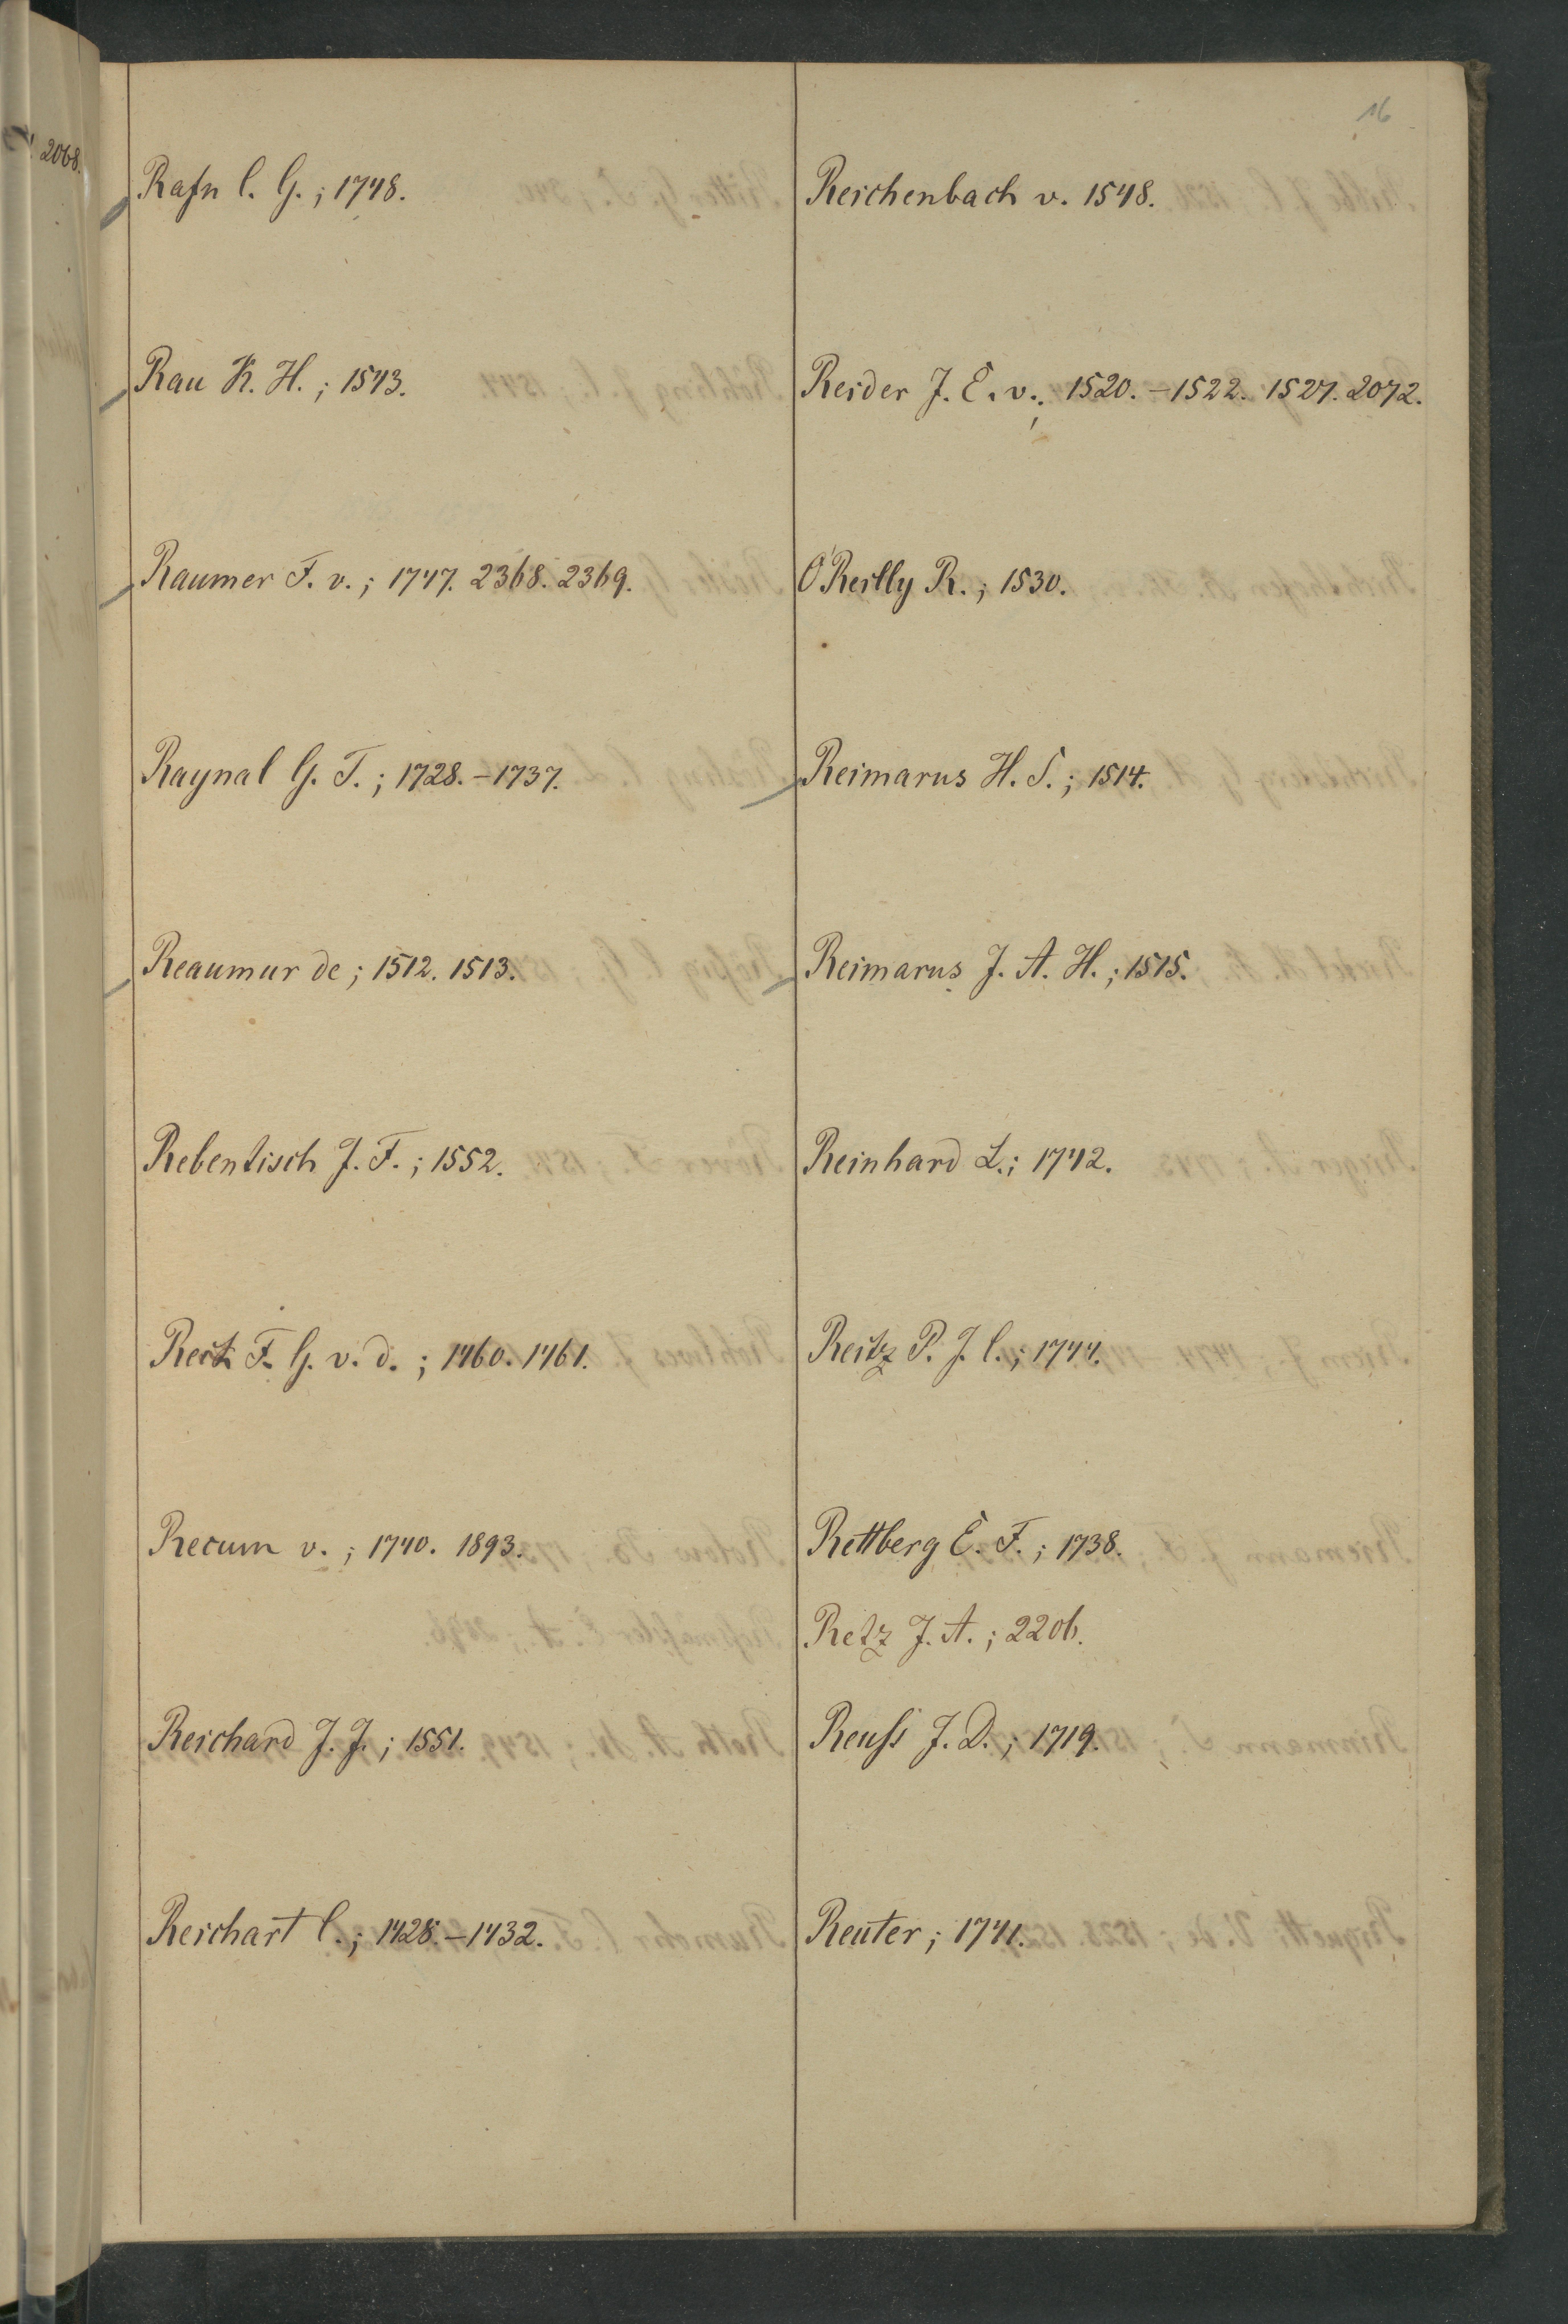 16
2068.
Rafn C. G.; 1748.
Rau K. H.; 1543.
Raumer F. v.; 1747. 2368. 2369.
Raynal G. T.; 1728.–1737.
Reaumur de; 1512. 1513.
Rebentisch J. F.; 1552.
Reck F. G. v. d.; 1460. 1461.
Recum v.; 1740. 1893.
Reichard J. J.; 1551.
Reichart C.; 1428.–1432.
Reichenbach v. 1548.
Reider J. E. v.; 1520.–1522. 1527. 2072.
O'Reilly R.; 1530.
Reimarus H. S.; 1514.
Reimarus J. A. H.; 1515.
Reinhard L.; 1742.
Reitz P. J. C.; 1744.
Rettberg E. F.; 1738.
Retz J. A.; 2206.
Reuſs J. D.; 1719.
Reuter; 1741.